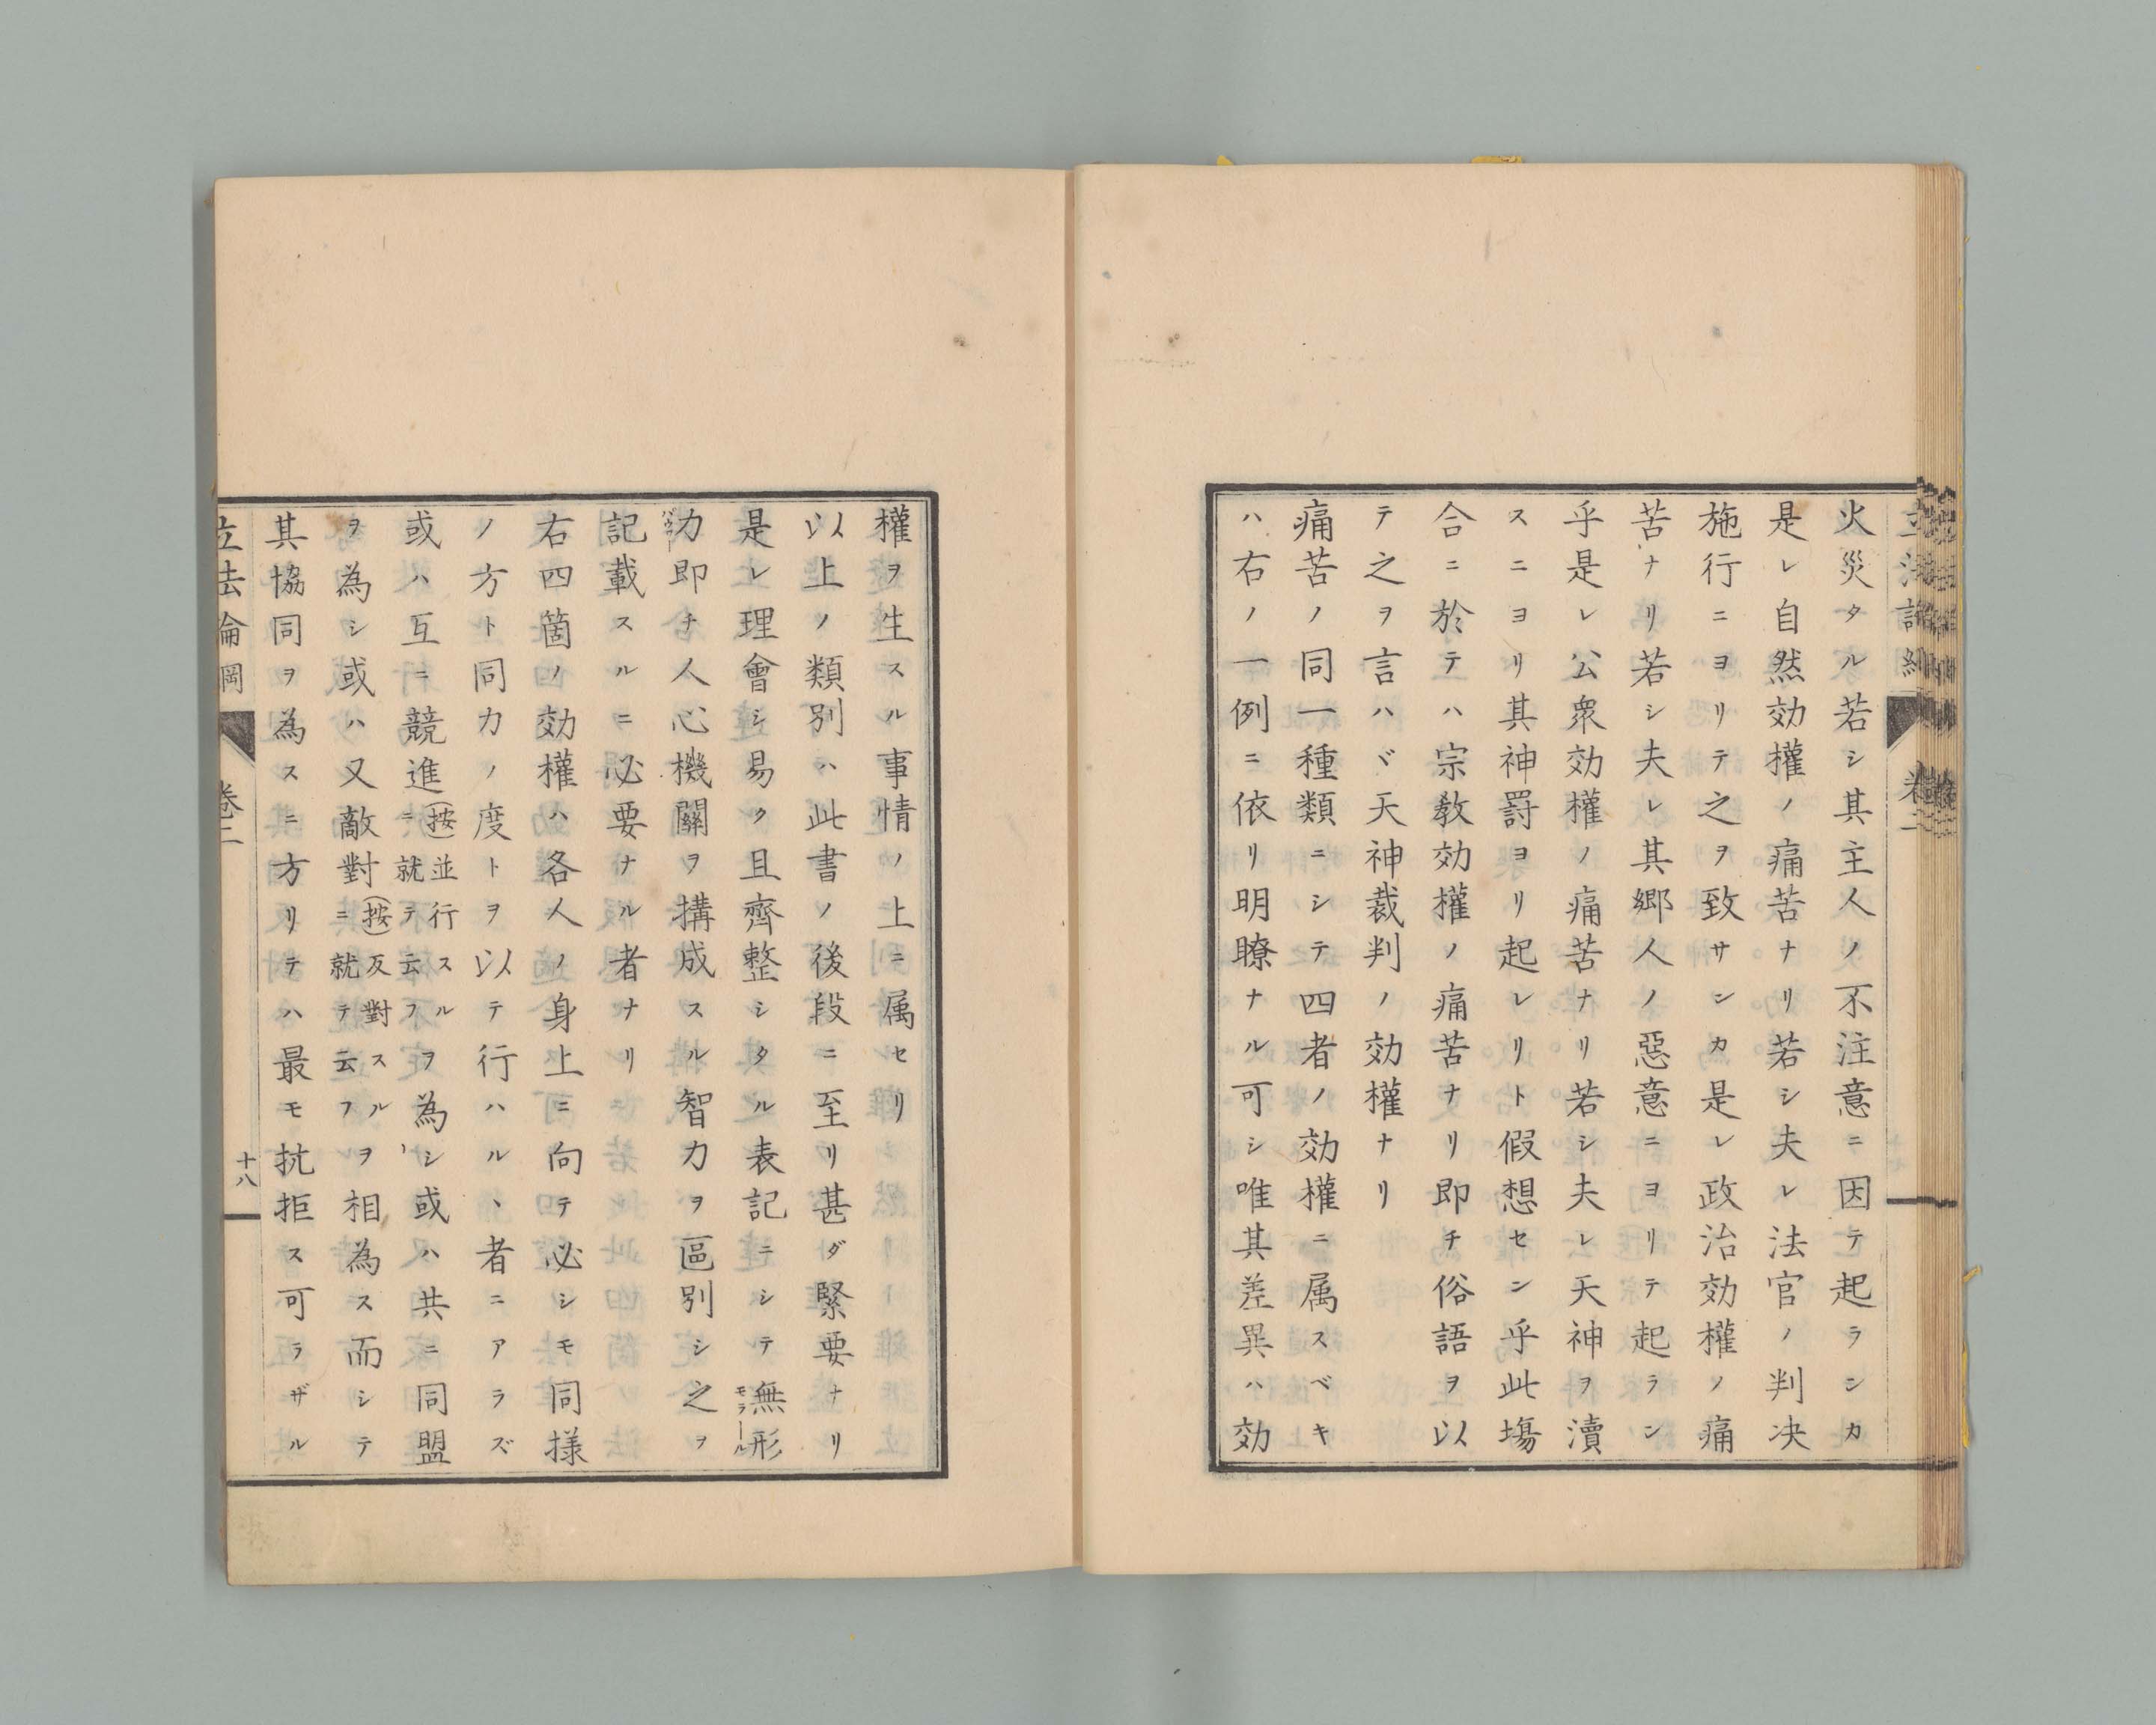 火災タル若シ其主人ノ不注意ニ因テ起ランカ
是レ自然効權ノ痛苦ナリ若シ夫レ法官ノ判决
施行ニヨリテ之ヲ致サンカ是レ政治効權ノ痛
苦ナリ若シ夫レ其郷人ノ惡意ニヨリテ起ラン
乎是レ公衆効權ノ痛苦ナリ若シ夫レ天神ヲ瀆
スニヨリ其神罸ヨリ起レリト假想セン乎此塲
合ニ於テハ宗教効權ノ痛苦ナリ即チ俗語ヲ以
テ之ヲ言ハヾ天神裁判ノ効權ナリ
痛苦ノ同一種類ニシテ四者ノ効權ニ属スベキ
ハ右ノ一例ニ依リ明瞭ナル可シ唯其差異ハ効
權ヲ生スル事情ノ上ニ属セリ
以上ノ類別ハ此書ノ後段ニ至リ甚ダ緊要ナリ
是レ理會シ易ク且齊整シタル表記ニシテ無形
モラール
力即チ人心機關ヲ搆成スル智力ヲ區別シ之ヲ
パウー
記載スルニ必要ナル者ナリ
右四箇ノ効權ハ各人ノ身上ニ向テ必シモ同様
ノ方ト同力ノ度トヲ以テ行ハルヽ者ニアラズ
或ハ互ニ競進(按)並行スル
ニ就テ云フヲ為シ或ハ共ニ同盟
ヲ為シ或ハ又敵對(按)反對スル
ニ就テ云フヲ相為ス而シテ
其協同ヲ為スニ方リテハ最モ抗拒ス可ラザル
立法論綱 卷二 十八